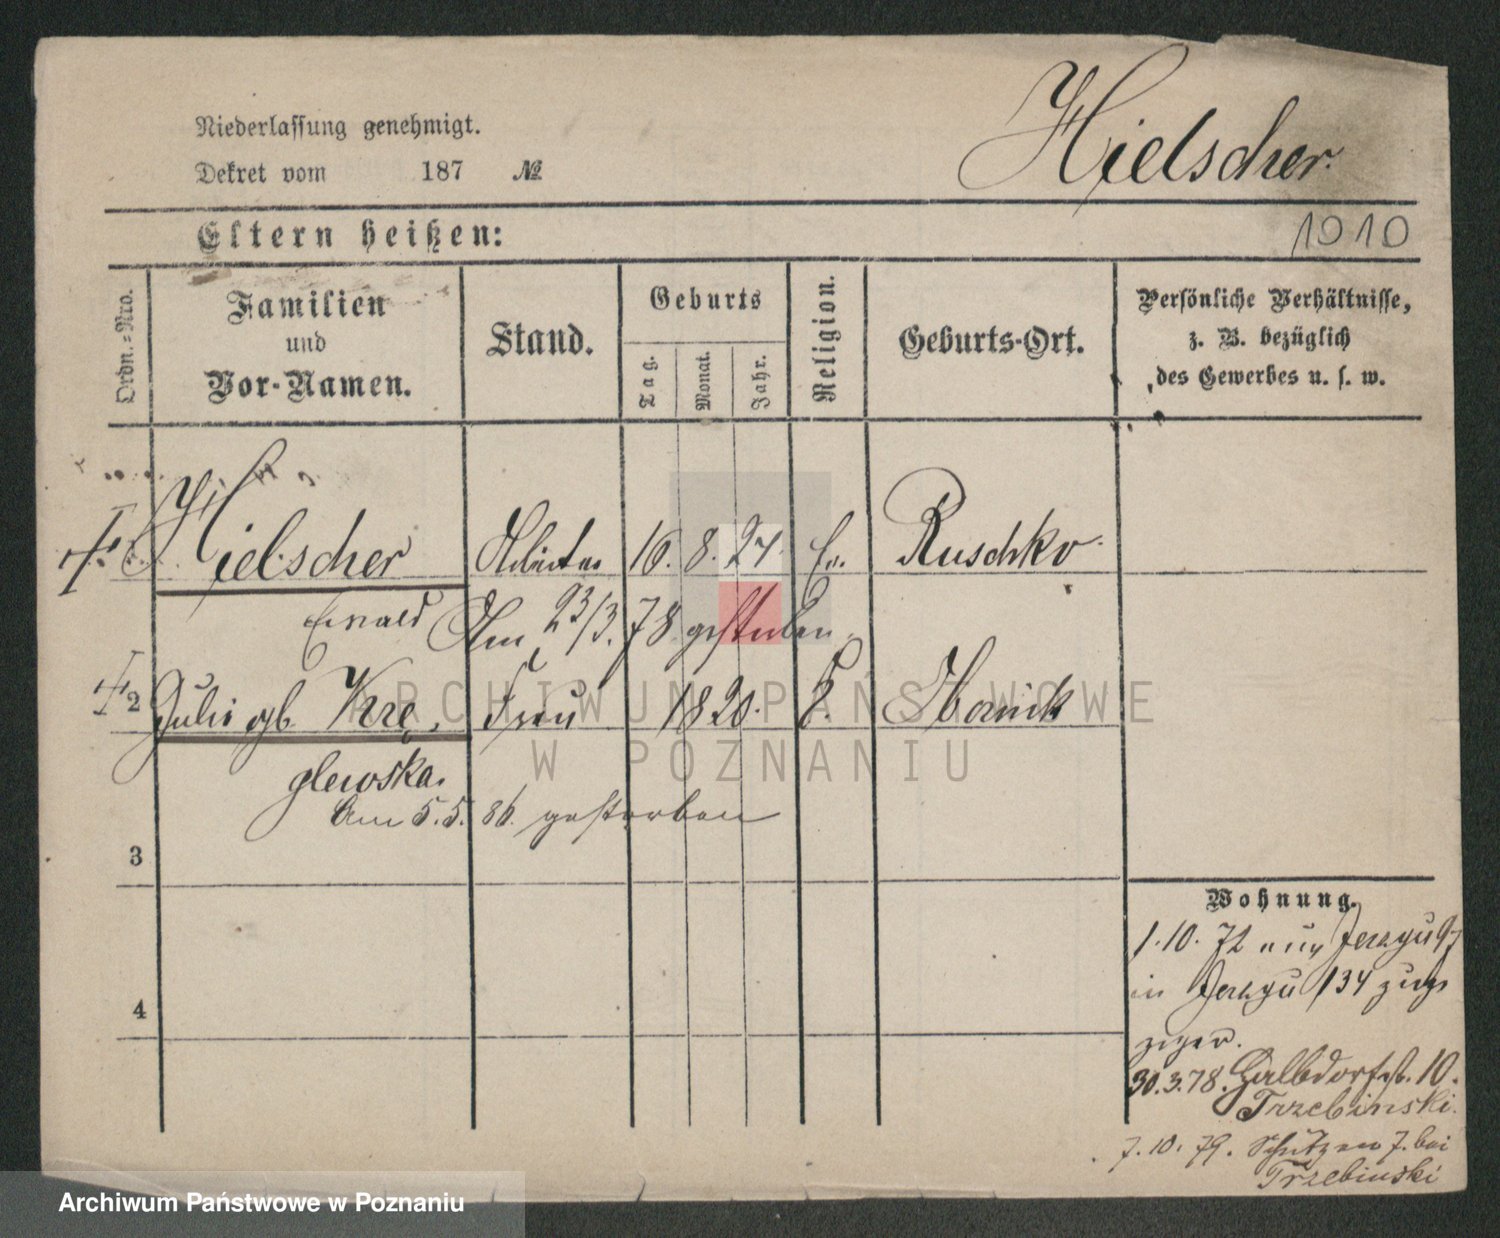 Niederlassung genehmigt.
Dekret vom 187 №
Hielscher.
Eltern heißen:
1010
Ordn.=Nro.
Familien
und
Vor-Namen.
Stand.
Geburts
Tag.
Monat.
Jahr.
Religion.
Geburts-Ort.
Persönliche Verhältnisse,
z. B. bezüglich
des Gewerbes u. s. w.
Hielscher Arbeiter 16. 8. 24. Ev. Ruschko
Ewald Am 23/3. 78 gestorben
2 Julie gb. Krę- Frau 1820.
glewska.
Am 5. 5. 86. gestorben
3
4
Wohnung.
1. 10. 72 aus Jerzyu 97
in Jerzyu 134
30. 3. 78. Halbdorfst. 10.
Trzebinski.
7. 10. 79. Schützen 7. bei
Trzebinski
ARCHIWUM PAŃSTWOWE
W POZNANIU
Archiwum Państwowe w Poznaniu